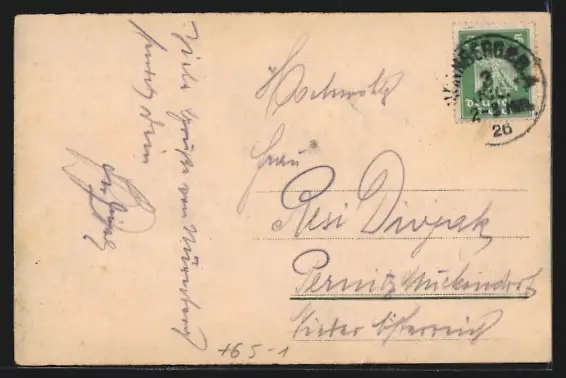 Viele Grüße von Nürnberg
sendet dein
Hochwohlg
Frau
Resi Divjak
Pernitz Muckendorf
Nieder Österreich
NÜRNBERG
2
26
5
+65-1